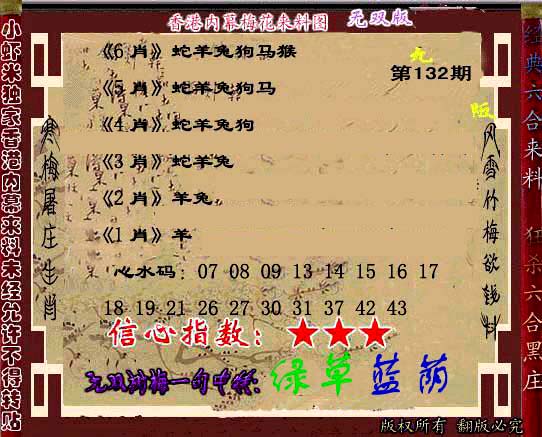 香港内幕梅花来料图 无双版
小虾米独家香港内幕来料未经允许不得转贴
经典六合来料 狂杀六合黑庄
无
版
第132期
寒梅屠庄生肖
风雪竹梅欲钱料
《6 肖》蛇羊兔狗马猴
《5 肖》蛇羊兔狗马
《4 肖》蛇羊兔狗
《3 肖》蛇羊兔
《2 肖》羊兔
《1 肖》羊
心水码：07 08 09 13 14 15 16 17
18 19 21 26 27 30 31 37 42 43
信心指数：★★★
无双剑梅一句中特：绿草蓝荫
版权所有 翻版必究